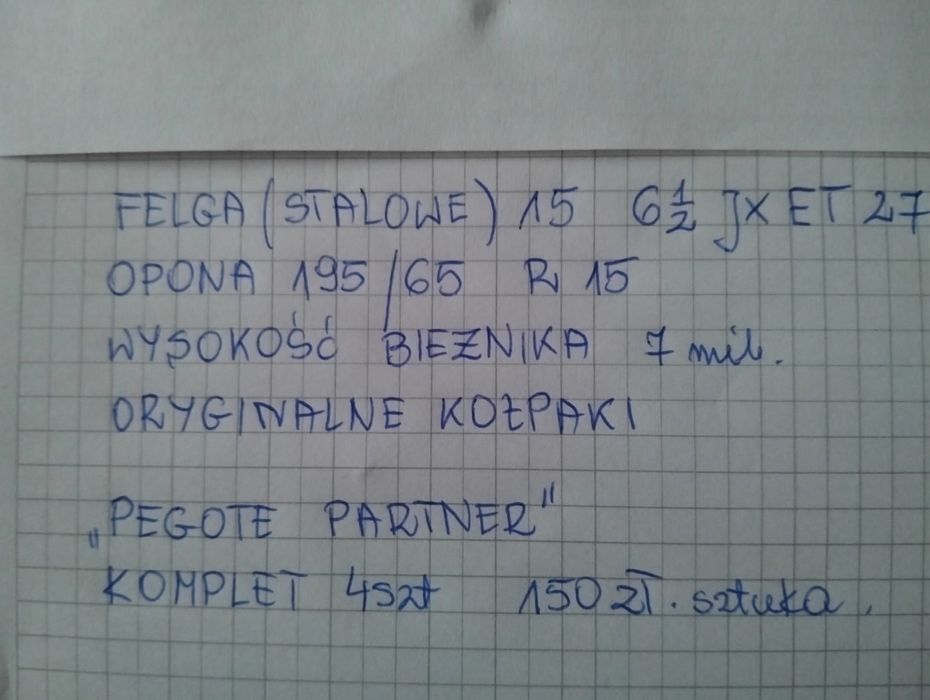 FELGA (STALOWE) 15 6 1/2 JX ET 27
OPONA 195/65 R 15
WYSOKOŚĆ BIEŻNIKA 7 mil.
ORYGINALNE KOŁPAKI
„PEGOTE PARTNER”
KOMPLET 4szt 150 ZŁ. sztuka.